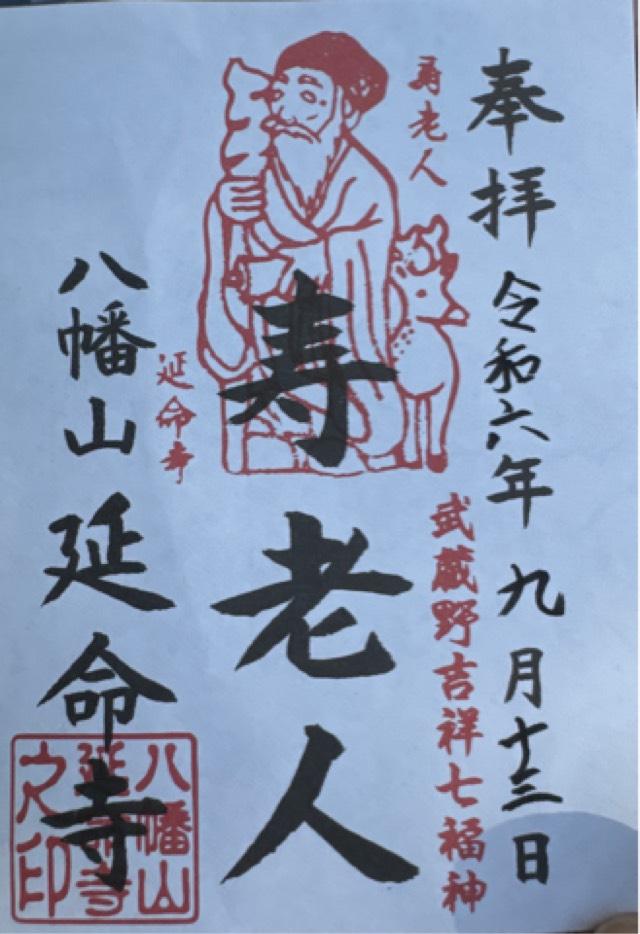 奉拝 令和六年 九月十三日
寿老人
武蔵野吉祥七福神
寿老人
延命寺
八幡山 延命寺
八幡山
延命寺
之印